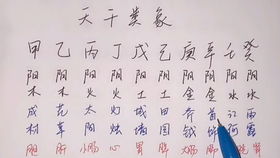 天干类象
甲 乙 丙 丁 戊 己 庚 辛 壬 癸
阳 阴 阳 阴 阳 阴 阳 阴 阳 阴
木 木 火 火 土 土 金 金 水 水
成 花 太 灯 城 田 斧 首 江 雨
材 草 阳 烛 墙 园 钺 饰 河 露
胆 肝 小肠 心 胃 脾